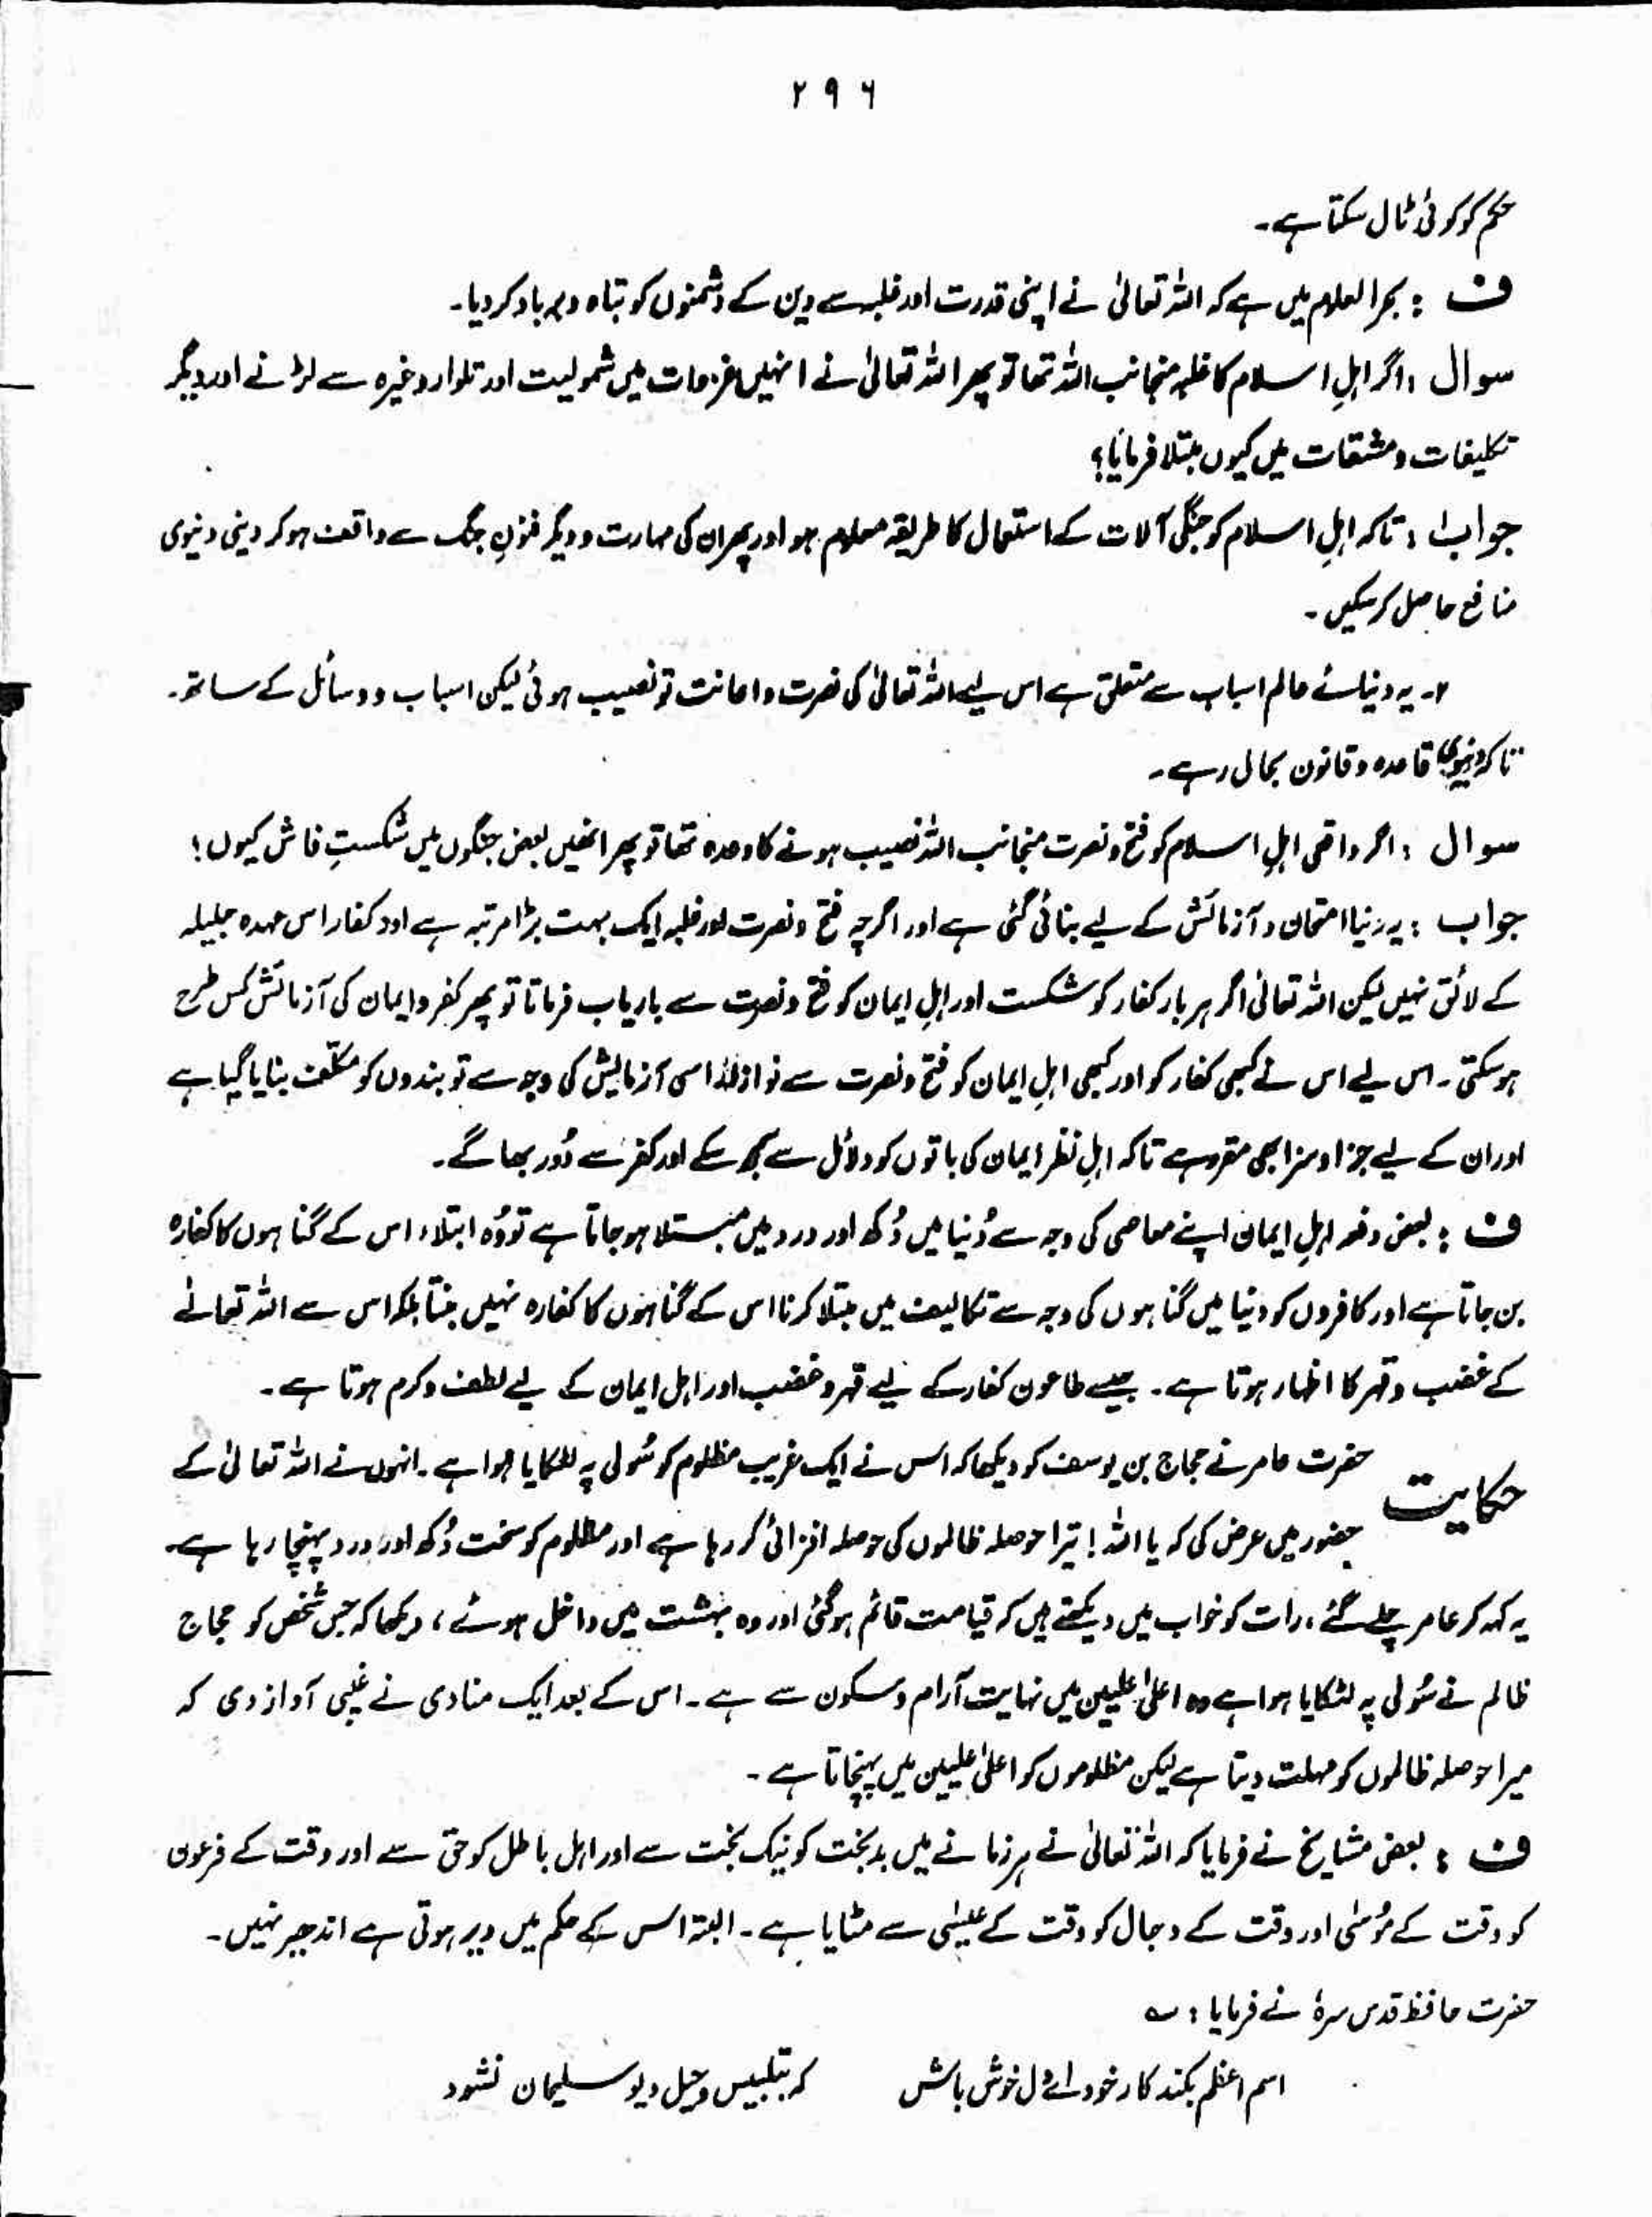 ۲۹۶
حکم کو کوئی ٹال سکتا ہے۔
ف : بحرالعلوم میں ہے کہ اللہ تعالیٰ نے اپنی قدرت اور غلبہ سے دین کے دشمنوں کو تباہ و برباد کر دیا۔
سوال : اگر اہلِ اسلام کا غلبہ منجانب اللہ تھا تو پھر اللہ تعالیٰ نے انہیں غزوات میں شمولیت اور تلوار وغیرہ سے لڑنے اور دیگر
تکلیفات و مشقات میں کیوں مبتلا فرمایا؟
جواب ۱ : تاکہ اہلِ اسلام کو جنگی آلات کے استعمال کا طریقہ معلوم ہو اور پھر ان کی مہارت و دیگر فنونِ جنگ سے واقف ہو کر دینی دنیوی
منافع حاصل کر سکیں۔
۲۔ یہ دنیائے عالم اسباب سے متعلق ہے اس لیے اللہ تعالیٰ کی نصرت و اعانت تو نصیب ہوئی لیکن اسباب و وسائل کے ساتھ۔
تاکہ دنیوی قاعدہ و قانون بحال رہے۔
سوال : اگر واقعی اہلِ اسلام کو فتح و نصرت منجانب اللہ نصیب ہونے کا وعدہ تھا تو پھر انھیں بعض جنگوں میں شکستِ فاش کیوں؟
جواب : یہ دنیا امتحان و آزمائش کے لیے بنائی گئی ہے اور اگرچہ فتح و نصرت اور غلبہ ایک بہت بڑا مرتبہ ہے اور کفار اس عہدہ جلیلہ
کے لائق نہیں لیکن اللہ تعالیٰ اگر ہر بار کفار کو شکست اور اہلِ ایمان کو فتح و نصرت سے باریاب فرماتا تو پھر کفر و ایمان کی آزمائش کس طرح
ہو سکتی۔ اس لیے اس نے کبھی کفار کو اور کبھی اہلِ ایمان کو فتح و نصرت سے نوازا لہٰذا اسی آزمایش کی وجہ سے تو بندوں کو مکلّف بنایا گیا ہے
اور ان کے لیے جزا و سزا بھی مقرر ہے تاکہ اہلِ نظر ایمان کی باتوں کو دلائل سے سمجھ سکے اور کفر سے دُور بھاگے۔
ف : بعض دفعہ اہلِ ایمان اپنے معاصی کی وجہ سے دُنیا میں دُکھ اور درد میں مبتلا ہو جاتا ہے تو وُہ ابتلاء اس کے گناہوں کا کفارہ
بن جاتا ہے اور کافروں کو دنیا میں گناہوں کی وجہ سے تکالیف میں مبتلا کرنا اس کے گناہوں کا کفارہ نہیں بنتا بلکہ اس سے اللہ تعالےٰ
کے غضب و قہر کا اظہار ہوتا ہے۔ جیسے طاعون کفار کے لیے قہر و غضب اور اہل ایمان کے لیے لطف و کرم ہوتا ہے۔
حکایت حضرت عامر نے حجاج بن یوسف کو دیکھا کہ اس نے ایک غریب مظلوم کو سُولی پہ لٹکایا ہوا ہے۔ انہوں نے اللہ تعالیٰ کے
حضور میں عرض کی کہ یا اللہ! تیرا حوصلہ ظالموں کی حوصلہ افزائی کر رہا ہے اور مظلوم کو سخت دُکھ اور درد پہنچا رہا ہے۔
یہ کہہ کر عامر چلے گئے، رات کو خواب میں دیکھتے ہیں کہ قیامت قائم ہو گئی اور وہ بہشت میں داخل ہوئے، دیکھا کہ جس شخص کو حجاج
ظالم نے سُولی پہ لٹکایا ہوا ہے وہ اعلیٰ علیین میں نہایت آرام و سکون سے ہے۔ اس کے بعد ایک منادی نے غیبی آواز دی کہ
میرا حوصلہ ظالموں کو مہلت دیتا ہے لیکن مظلوموں کو اعلیٰ علیین میں پہنچاتا ہے۔
ف : بعض مشایخ نے فرمایا کہ اللہ تعالیٰ نے ہر زمانے میں بدبخت کو نیک بخت سے اور اہل باطل کو حق سے اور وقت کے فرعون
کو وقت کے مُوسٰی اور وقت کے دجال کو وقت کے عیسٰی سے مٹایا ہے۔ البتہ اس کے حکم میں دیر ہوتی ہے اندھیر نہیں۔
حضرت حافظ قدس سرہٗ نے فرمایا : ؎
اسم اعظم بکند کار خود اے دل خوش باش کہ بتلبیس و حیل دیو سلیمان نشود